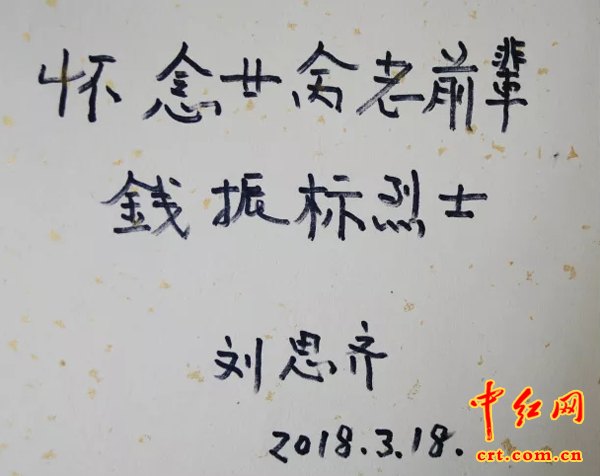 怀念老前輩
銭振标烈士
刘思齐
2018.3.18.
中红网
crt.com.cn